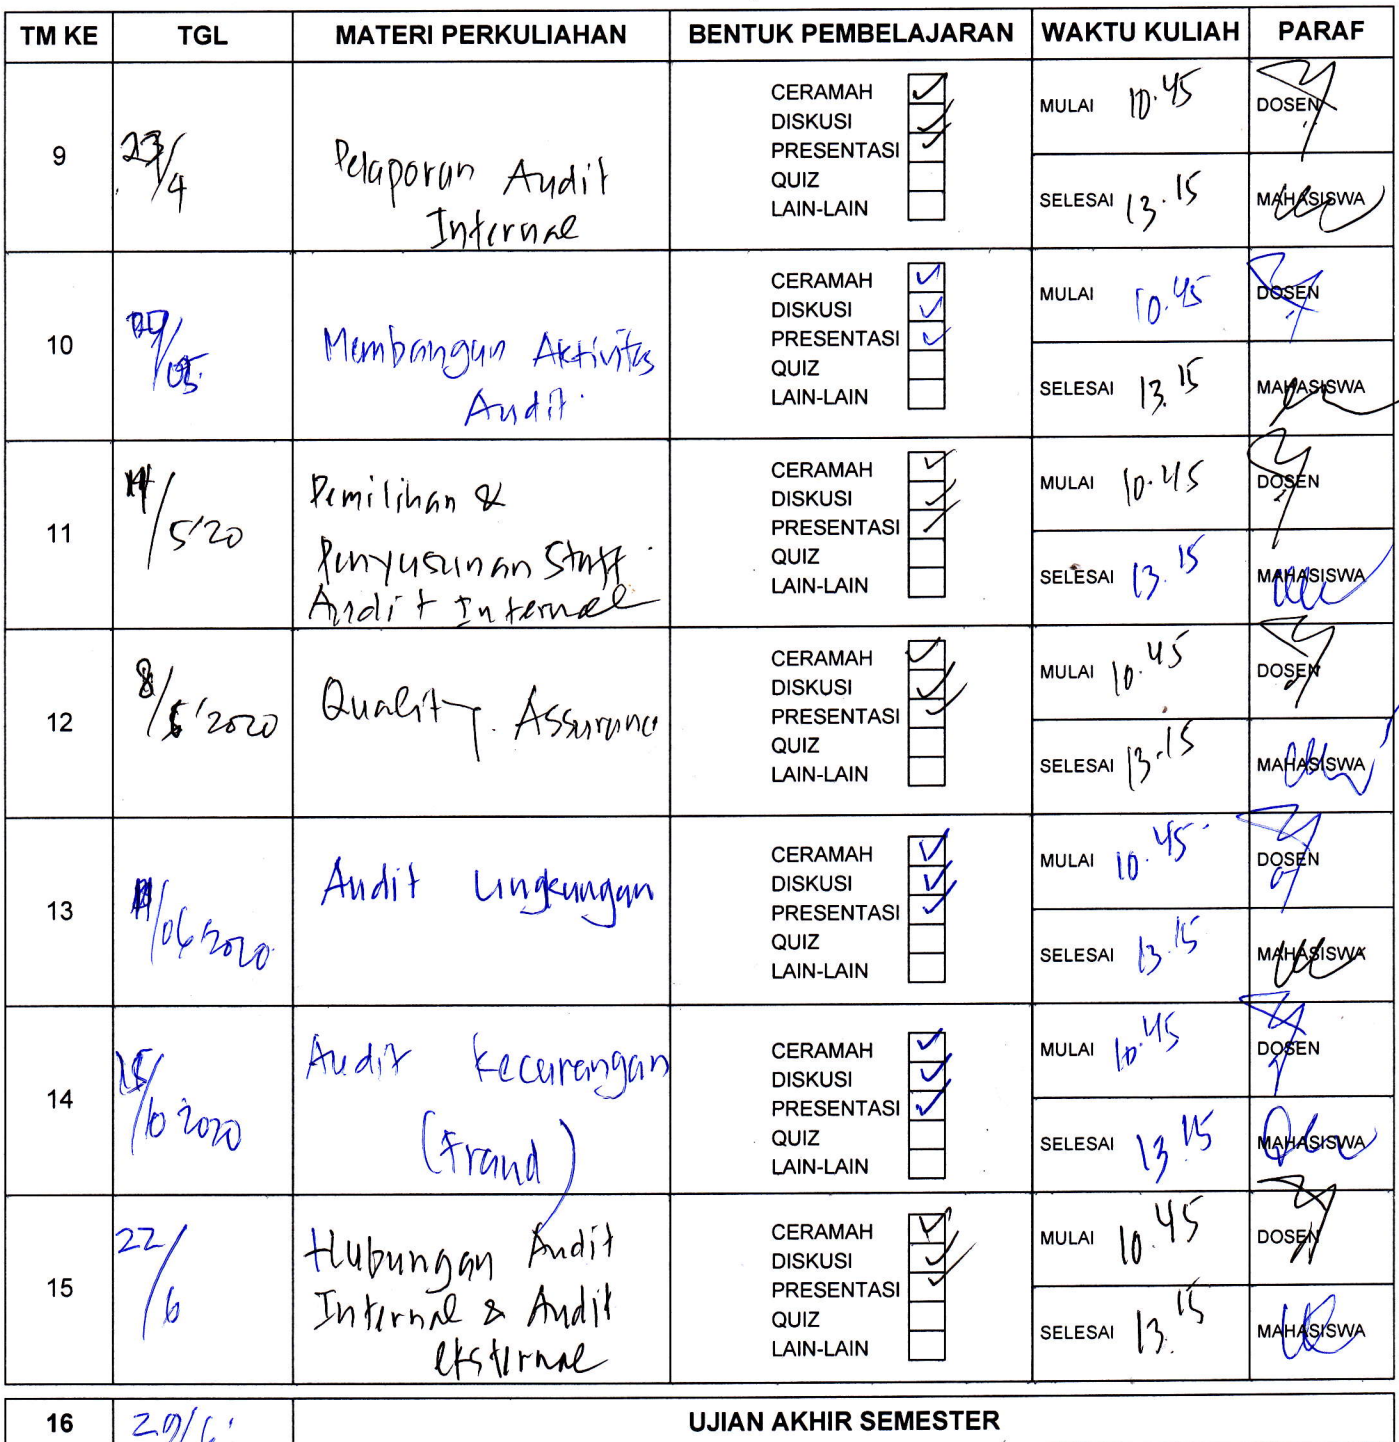 TM KE TGL MATERI PERKULIAHAN BENTUK PEMBELAJARAN WAKTU KULIAH PARAF
9 23/4 Pelaporan Audit Internal
CERAMAH
DISKUSI
PRESENTASI
QUIZ
LAIN-LAIN
MULAI 10.45 DOSEN
SELESAI 13.15 MAHASISWA
10 /05 Membangun Aktivitas Audit
CERAMAH
DISKUSI
PRESENTASI
QUIZ
LAIN-LAIN
MULAI 10.45 DOSEN
SELESAI 13.15 MAHASISWA
11 /5'20 Pemilihan &
Penyusunan Staff
Audit Internal
CERAMAH
DISKUSI
PRESENTASI
QUIZ
LAIN-LAIN
MULAI 10.45 DOSEN
SELESAI 13.15 MAHASISWA
12 8/ '2020 Quality Assurance
CERAMAH
DISKUSI
PRESENTASI
QUIZ
LAIN-LAIN
MULAI 10.45 DOSEN
SELESAI 13.15 MAHASISWA
13 /06 2020 Audit Lingkungan
CERAMAH
DISKUSI
PRESENTASI
QUIZ
LAIN-LAIN
MULAI 10.45 DOSEN
SELESAI 13.15 MAHASISWA
14 15/6 2020 Audit Kecurangan
(Fraud)
CERAMAH
DISKUSI
PRESENTASI
QUIZ
LAIN-LAIN
MULAI 10.45 DOSEN
SELESAI 13.15 MAHASISWA
15 22/6 Hubungan Audit
Internal & Audit
eksternal
CERAMAH
DISKUSI
PRESENTASI
QUIZ
LAIN-LAIN
MULAI 10.45 DOSEN
SELESAI 13.15 MAHASISWA
16 UJIAN AKHIR SEMESTER